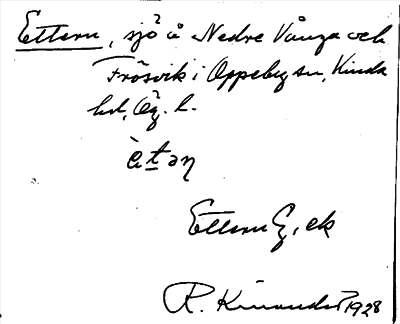 Ettern, sjö å Nedre Vånga och
Frösvik i Oppeby sn, Kinda
hd, Ög. l.
ètən
Ettern G, ek
R. Kinander 1928